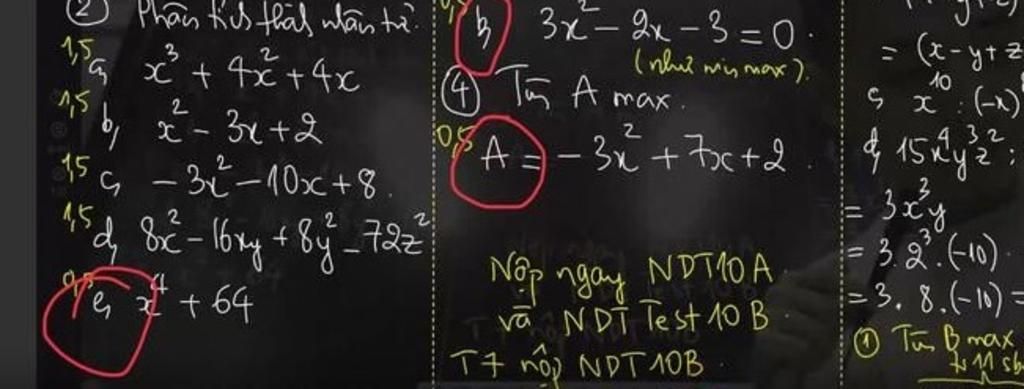 ② Phân tích thành nhân tử.
1,5 a, x³ + 4x² + 4x
1,5 b, x² - 3x + 2
1,5 c, -3x² - 10x + 8.
1,5 d, 8x² - 16xy + 8y² - 72z²
0,5 e, x⁴ + 64
0,5 b, 3x² - 2x - 3 = 0.
(như min max).
④ Tìm A max.
0,5 A = -3x² + 7x + 2
Nộp ngay NDT10A
và NDT Test 10 B
T7 nộp NDT 10B
= (x - y + z
c, x¹⁰ : (-x)
d, 15x⁴y³z² :
= 3x³y
= 3.2³.(-10)
= 3. 8.(-10) =
① Tìm B max